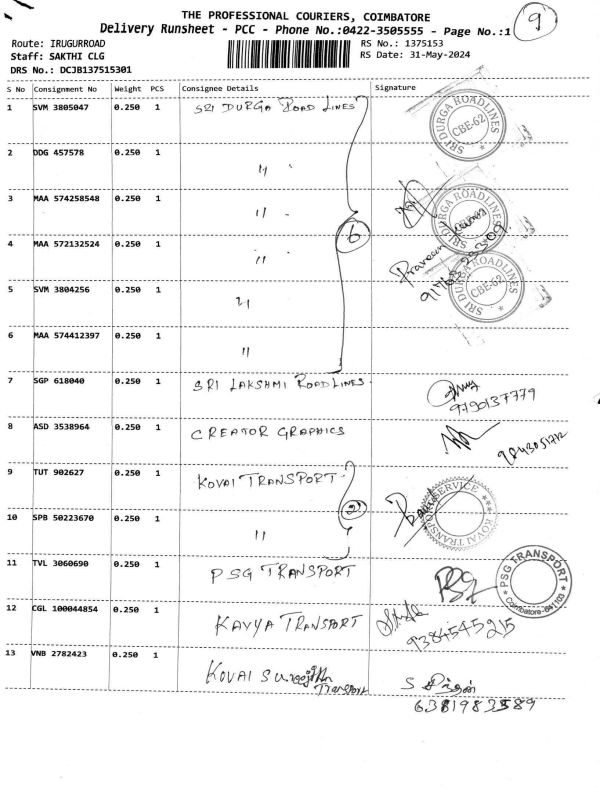 THE PROFESSIONAL COURIERS, COIMBATORE
9
Delivery Runsheet - PCC - Phone No.:0422-3505555 - Page No.:1
Route: IRUGURROAD
RS No.: 1375153
Staff: SAKTHI CLG
RS Date: 31-May-2024
DRS No.: DCJB137515301
S No Consignment No Weight PCS Consignee Details Signature
1 SVM 3805047 0.250 1 SRI DURGA ROAD LINES
SRI DURGA ROADLINES CBE-62
2 DDG 457578 0.250 1 "
3 MAA 574258548 0.250 1 "
SRI DURGA ROADLINES
6
4 MAA 572132524 0.250 1 "
Praveen
5 SVM 3804256 0.250 1 "
SRI DURGA ROADLINES CBE-62
6 MAA 574412397 0.250 1 "
7 SGP 618040 0.250 1 SRI LAKSHMI ROADLINES.
9790137779
8 ASD 3538964 0.250 1 CREATOR GRAPHICS
9 TUT 902627 0.250 1 KOVAI TRANSPORT
2
KOVAI TRANSPORT SERVICE
10 SPB 50223670 0.250 1 "
11 TVL 3060690 0.250 1 PSG TRANSPORT
PSG
PSG TRANSPORT Coimbatore-641103
12 CGL 100044854 0.250 1 KAVYA TRANSPORT
9384545215
13 VNB 2782423 0.250 1 KOVAI
Transport
6381983589